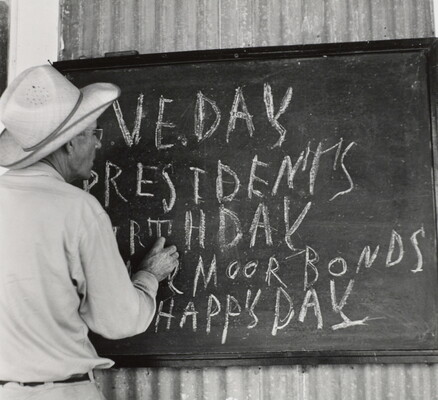 VE. DAY
PRESIDENT'S
BIRTHDAY
MOOR BONDS
HAPP'S DAY